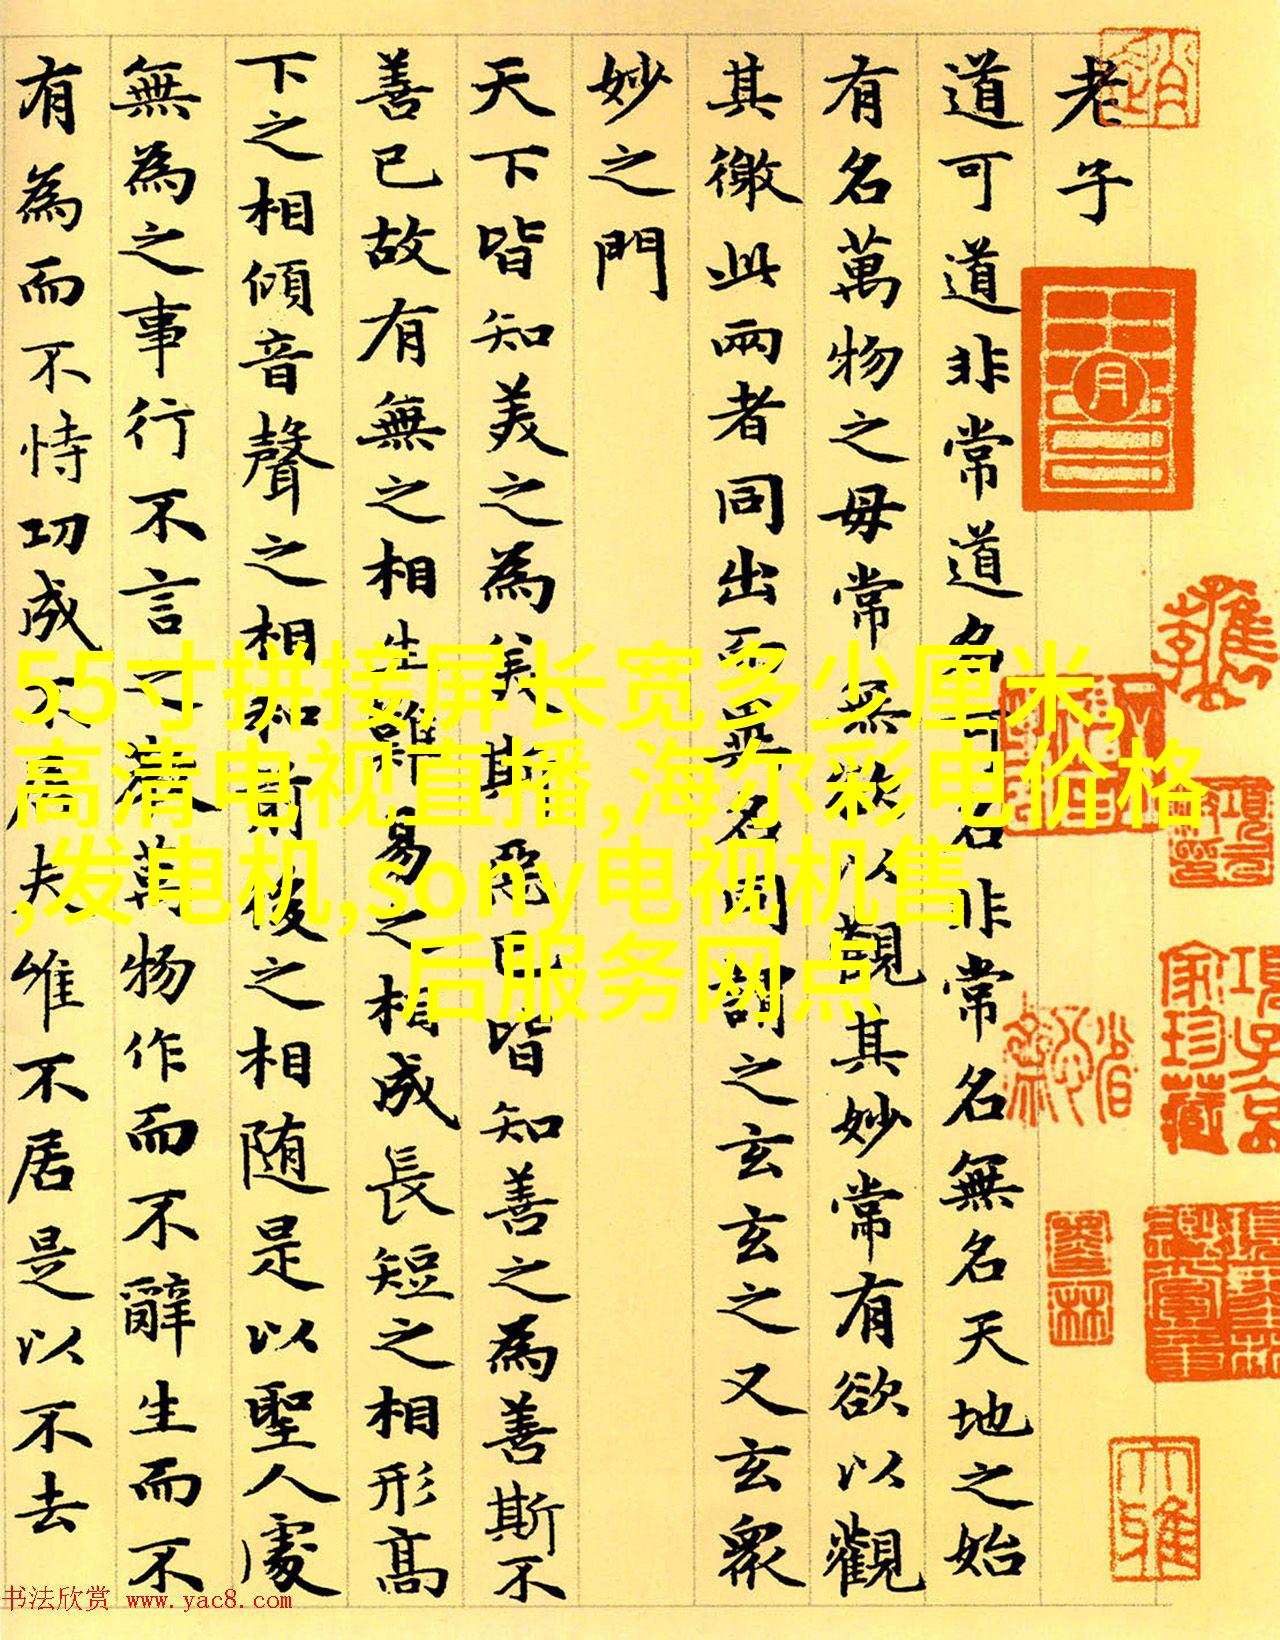 老子
道可道非常道名可名非常名無名天地之始
有名萬物之母常無欲以觀其妙常有欲以觀
其徼此兩者同出而異名同謂之玄玄之又玄衆
妙之門
天下皆知美之為美斯惡已皆知善之為善斯不
善已故有無之相生難易之相成長短之相形高
下之相傾音聲之相和前後之相随是以聖人處
無為之事行不言之教萬物作而不辭生而不
有為而不恃功成不居夫唯不居是以不去
55寸拼接屏长宽多少厘米,
高清电视直播,海尔彩电价格
,发电机,sony电视机售
后服务网点
項子京
家珍藏
书法欣赏 www.yac8.com